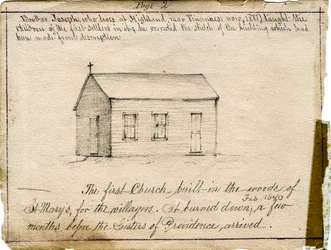 Page 2
Brother Joseph, who lives at Highland, near Vincennes now, 1887, taught the
children of the first settlers in 1834 he corrected the sketch of the building which had
been made from description
The first Church built in the woods of
St Mary's, for the villagers. It burned down, a few
Feb. 1840
months before the Sisters of Providence arrived